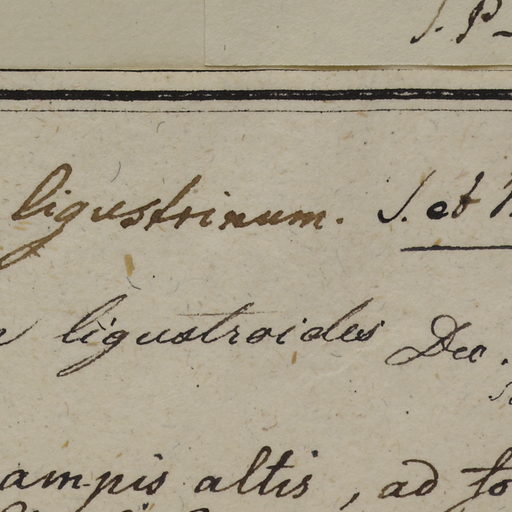 S. P
ligustrinum. S. et
ligustroides Dec.
ampis altis, ad